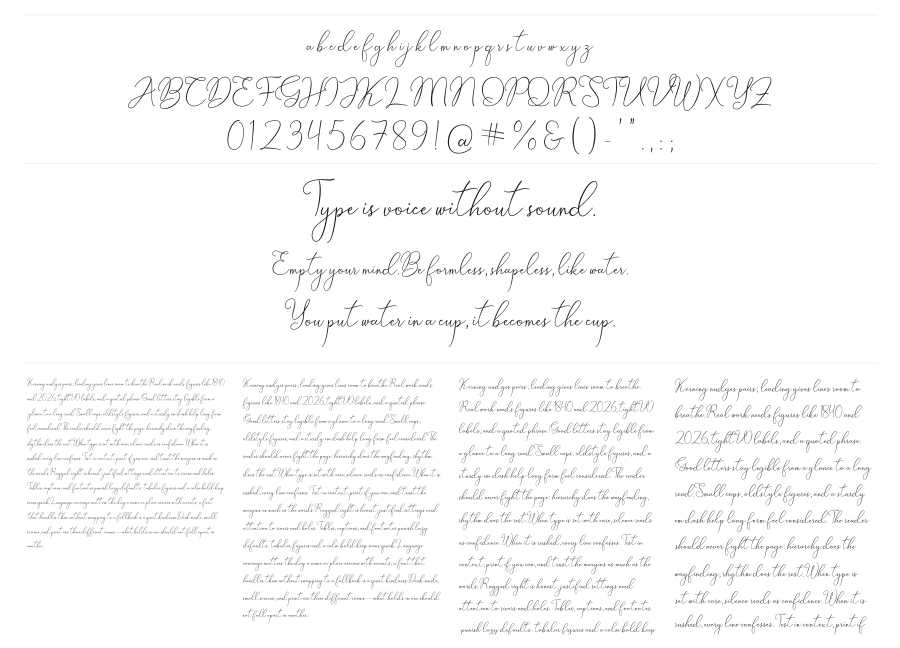 abcdefghijklmnopqrstuvwxyz
ABCDEFGHIJKLMNOPQRSTUVWXYZ
0123456789!@#%&()-'".,:;
Type is voice without sound.
Empty your mind. Be formless, shapeless, like water.
You put water in a cup, it becomes the cup.
Kerning nudges pairs, leading gives lines room to breathe. Real work needs figures like 1840
and 2026, tight VO labels, and a quoted phrase. Good letters stay legible from a
glance to a long read. Small caps, oldstyle figures, and a sturdy en dash help long form
feel considered. The reader should never fight the page: hierarchy does the wayfinding,
rhythm does the rest. When type is set with care, silence reads as confidence. When it is
rushed, every line confesses. Test in context, print if you can, and trust the margins as much as
the words. Ragged right is honest; justified settings need attention to rivers and holes.
Tables, captions, and footnotes punish lazy defaults: tabular figures and a calm bold keep
Kerning nudges pairs, leading gives lines room to breathe. Real work needs
figures like 1840 and 2026, tight VO labels, and a quoted phrase.
Good letters stay legible from a glance to a long read. Small caps,
oldstyle figures, and a sturdy en dash help long form feel considered. The
reader should never fight the page: hierarchy does the wayfinding, rhythm
does the rest. When type is set with care, silence reads as confidence. When it is
rushed, every line confesses. Test in context, print if you can, and trust the
margins as much as the words. Ragged right is honest; justified settings need
attention to rivers and holes. Tables, captions, and footnotes punish lazy
defaults: tabular figures and a calm bold keep
Kerning nudges pairs, leading gives lines room to breathe.
Real work needs figures like 1840 and 2026, tight VO
labels, and a quoted phrase. Good letters stay legible from
a glance to a long read. Small caps, oldstyle figures, and a
sturdy en dash help long form feel considered. The reader
should never fight the page: hierarchy does the wayfinding,
rhythm does the rest. When type is set with care, silence reads
as confidence. When it is rushed, every line confesses. Test in
context, print if you can, and trust the margins as much as the
words. Ragged right is honest; justified settings need
attention to rivers and holes. Tables, captions, and footnotes
punish lazy defaults: tabular figures and a calm bold keep
Kerning nudges pairs, leading gives lines room to
breathe. Real work needs figures like 1840 and
2026, tight VO labels, and a quoted phrase.
Good letters stay legible from a glance to a long
read. Small caps, oldstyle figures, and a sturdy
en dash help long form feel considered. The reader
should never fight the page: hierarchy does the
wayfinding, rhythm does the rest. When type is
set with care, silence reads as confidence. When it is
rushed, every line confesses. Test in context, print if